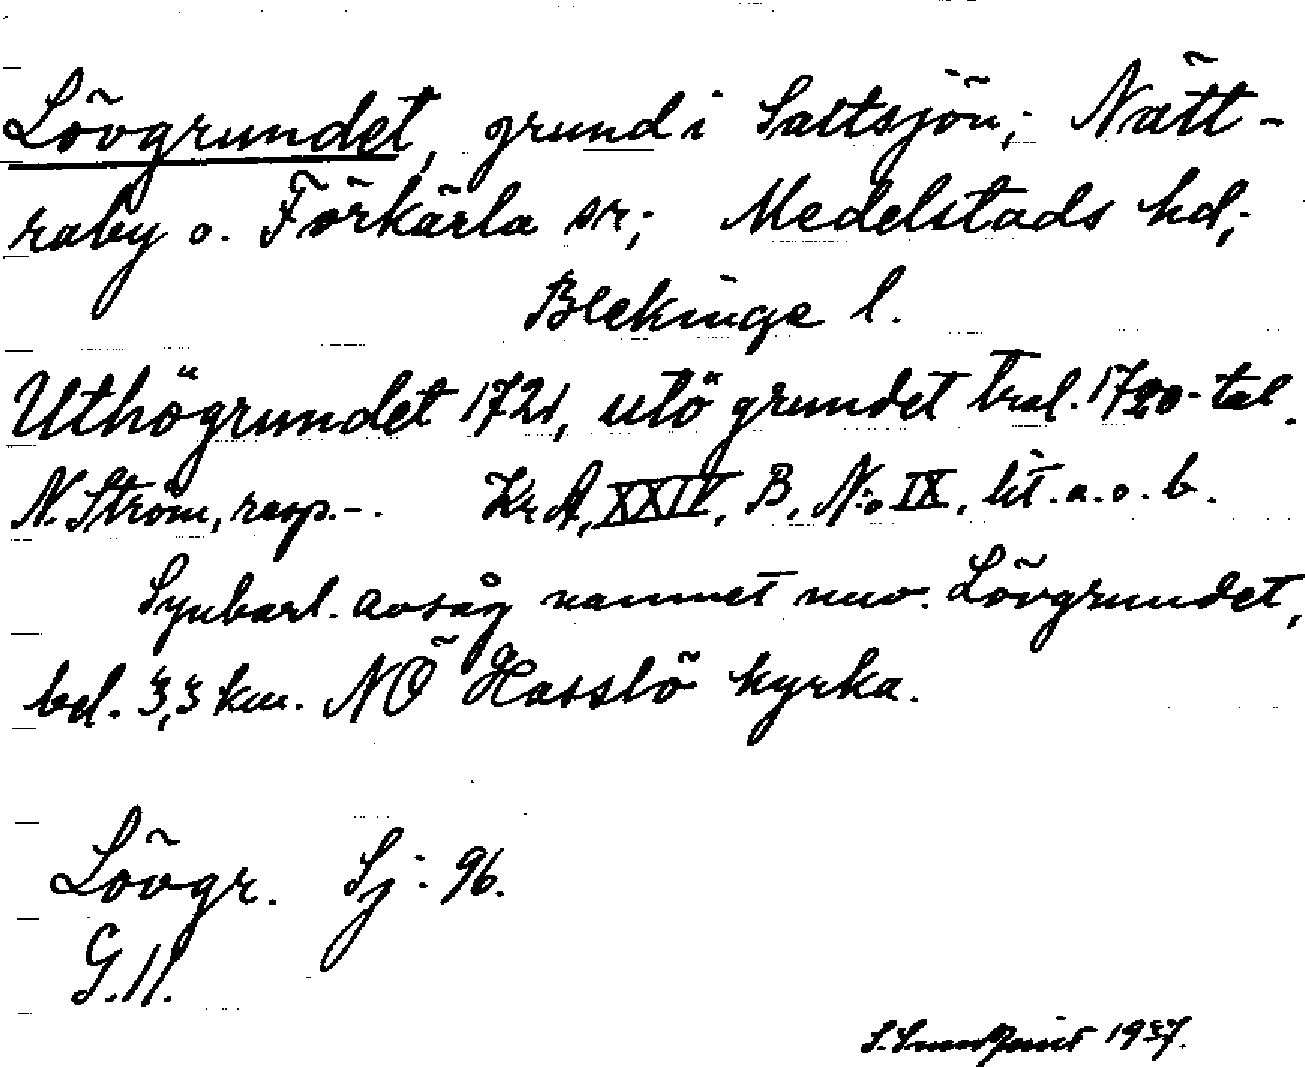 Lövgrundet, grund i Saltsjön; Nätt-
raby o. Förkärla sr; Medelstads hd;
Blekinge l.
Uthögrundet 1721, utö grundet tral. 1720-tal.
N. Ström, resp. -. KrA, XXIV, B, N:o IX, lit. a. o. b.
Synbarl. avsåg namnet nuv. Lövgrundet,
bel. 3,3 km. NÖ Hasslö kyrka.
Lövgr. Sj: 96.
G. 11.
1937.